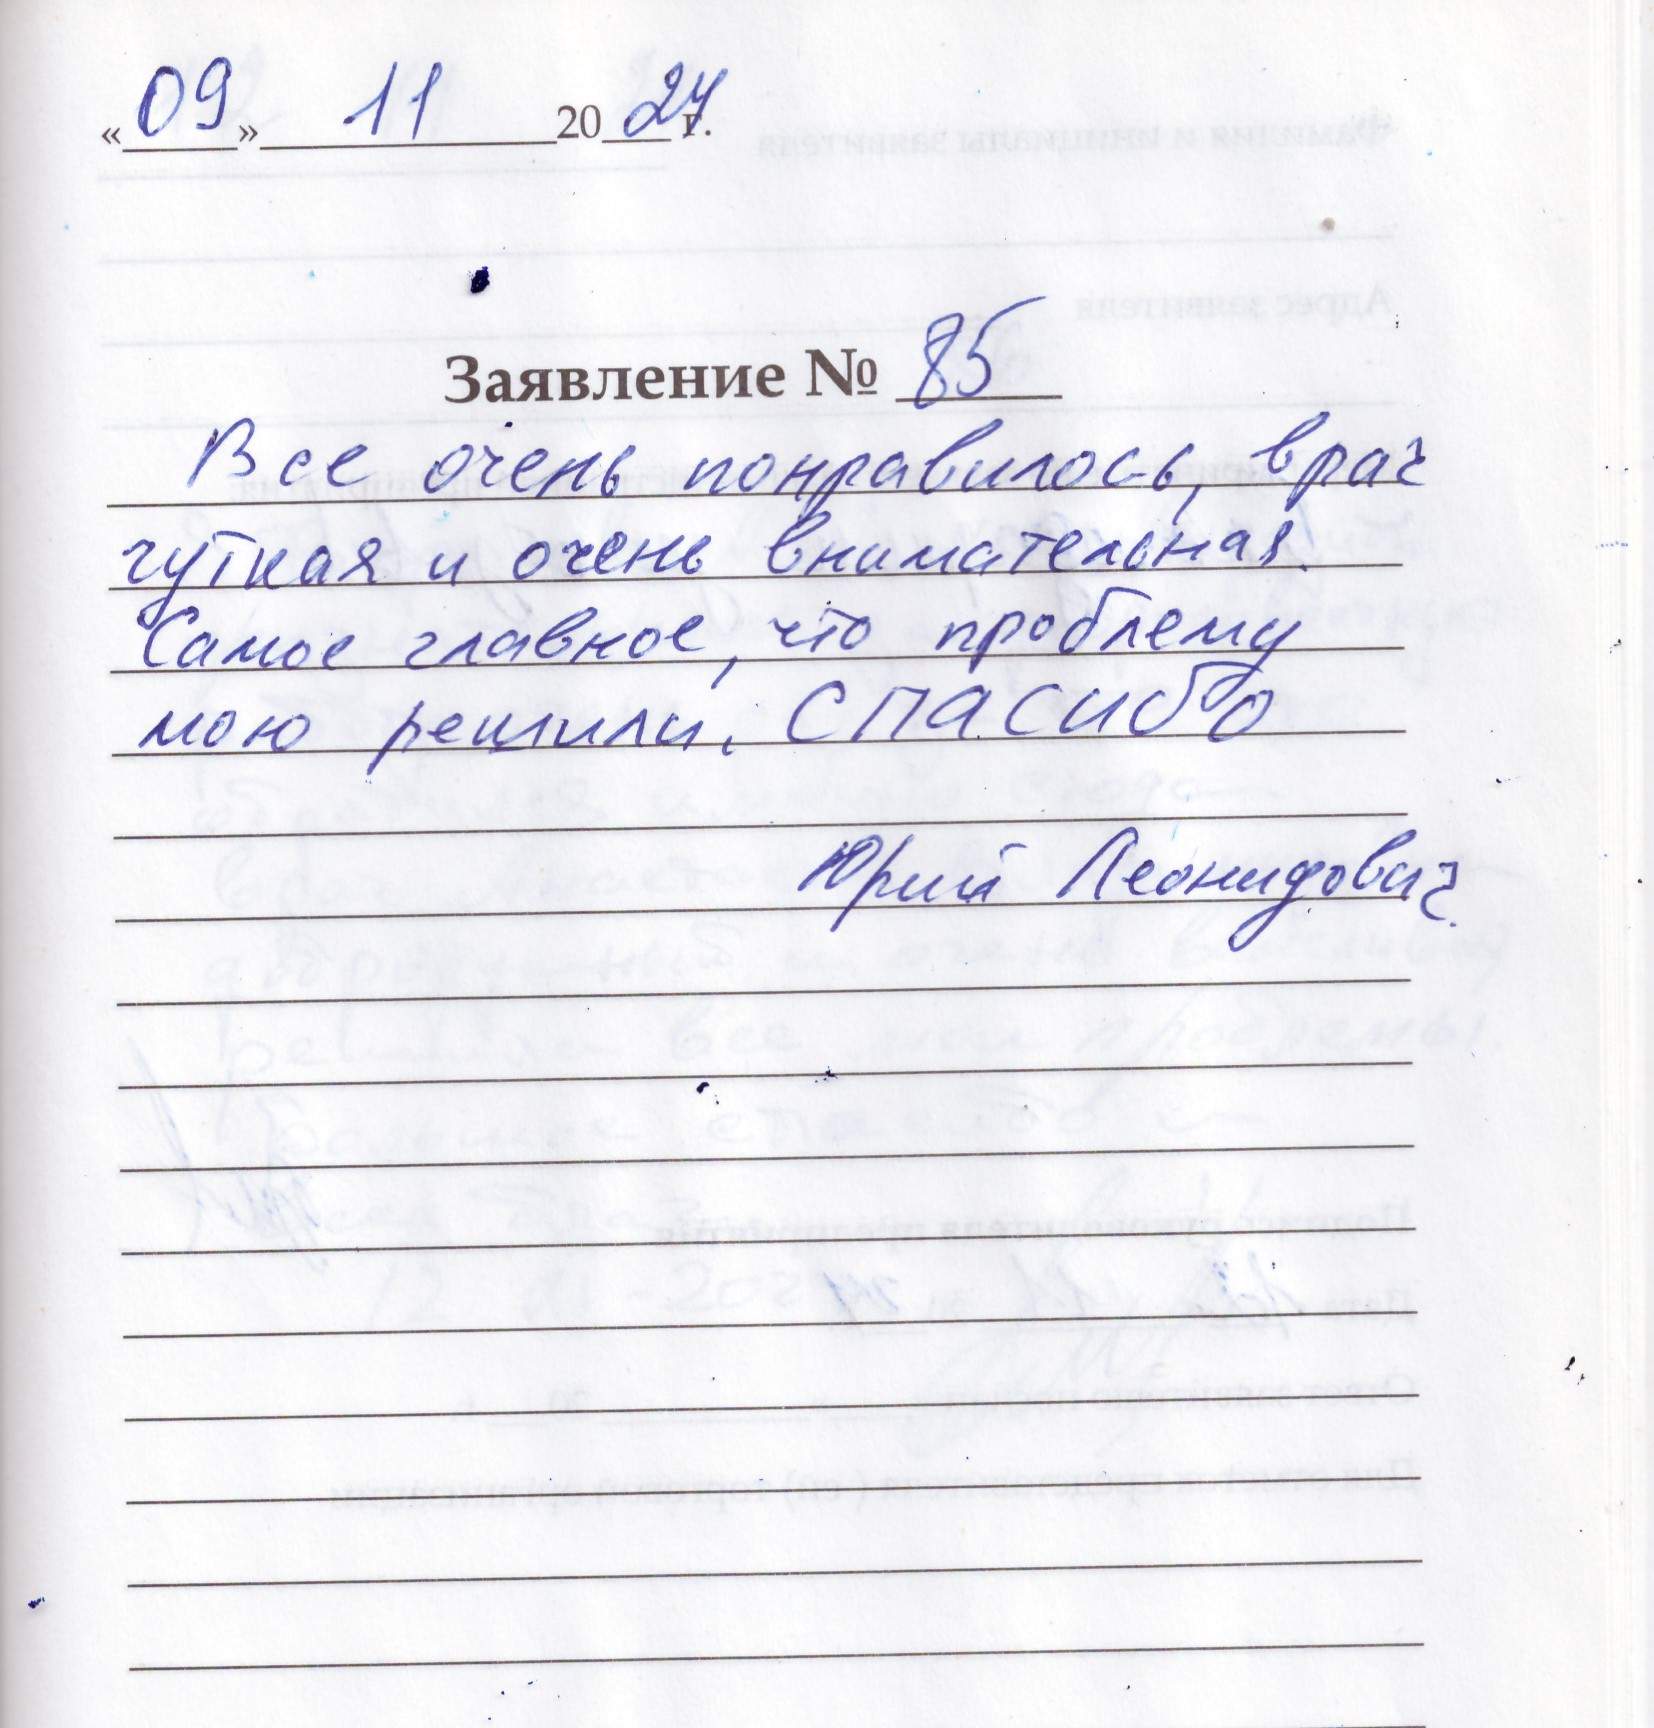 «09» 11 2024 г.
Заявление № 85
Все очень понравилось, врач
чуткая и очень внимательная.
Самое главное, что проблему
мою решили. СПАСИБО
Юрий Леонидович.